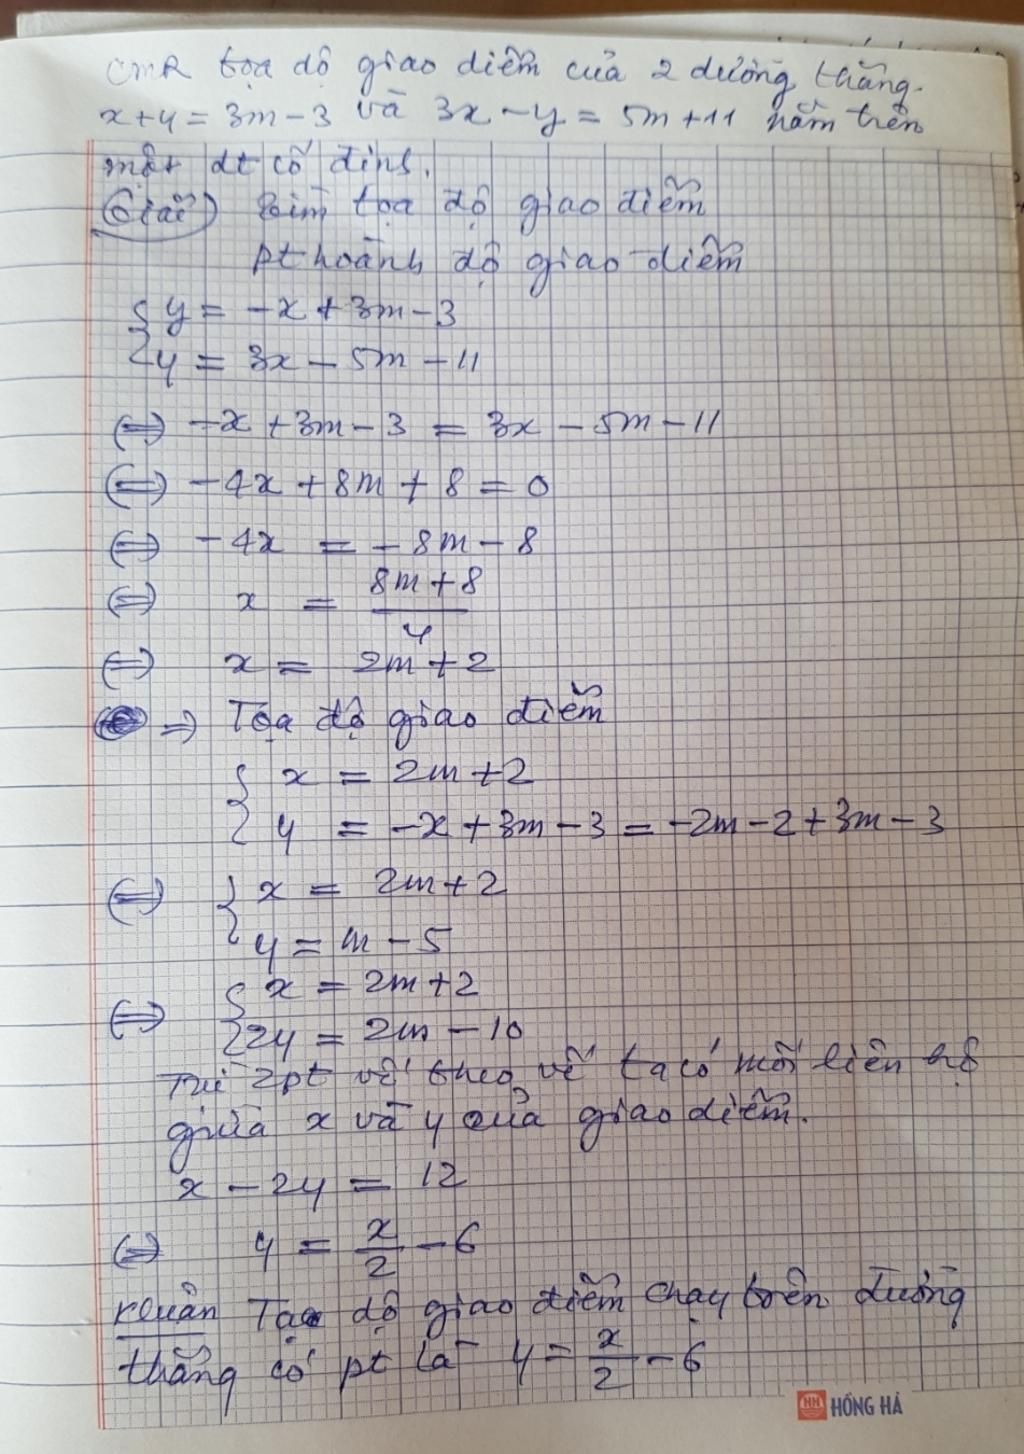 CMR tọa độ giao điểm của 2 đường thẳng.
x + y = 3m - 3 và 3x - y = 5m + 11 nằm trên
một đt cố định.
Giải) Tìm tọa độ giao điểm
Pt hoành độ giao điểm
{ y = -x + 3m - 3
{ y = 3x - 5m - 11
⇔ -x + 3m - 3 = 3x - 5m - 11
⇔ -4x + 8m + 8 = 0
⇔ -4x = -8m - 8
⇔ x = (8m + 8)/4
⇔ x = 2m + 2
⇒ Tọa độ giao điểm
{ x = 2m + 2
{ y = -x + 3m - 3 = -2m - 2 + 3m - 3
⇔ { x = 2m + 2
{ y = m - 5
⇔ { x = 2m + 2
{ 2y = 2m - 10
Trừ 2pt vế theo vế ta có mối liên hệ
giữa x và y của giao điểm.
x - 2y = 12
⇔ y = x/2 - 6
Kluận Tọa độ giao điểm chạy trên đường
thẳng có pt là y = x/2 - 6
HH HỒNG HÀ